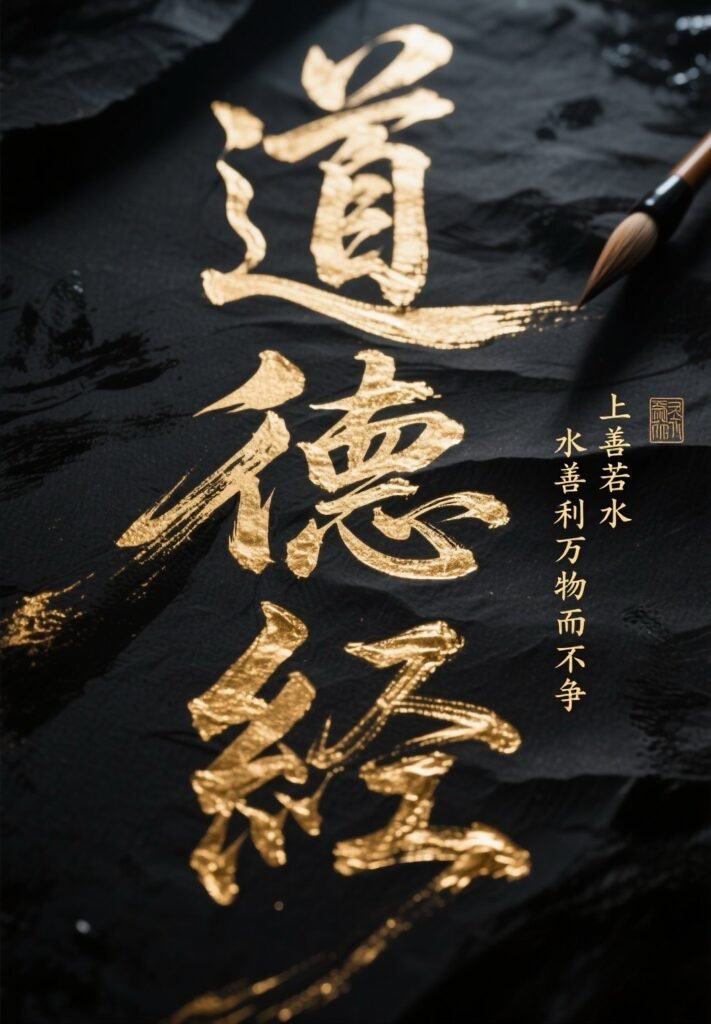 道德经
上善若水
水善利万物而不争